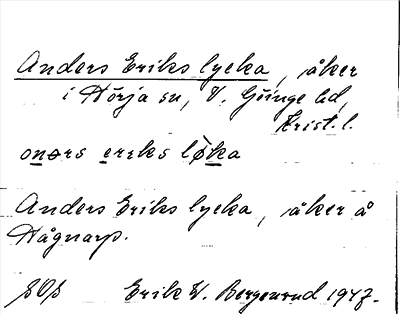 Anders Eriks lycka, åker
i Hörja sn, V. Göinge hd,
Krist. l.
onərs eriks lø̀ka
Anders Eriks lycka, åker å
Hågnarp.
Erik V. Bergenrud 1947.